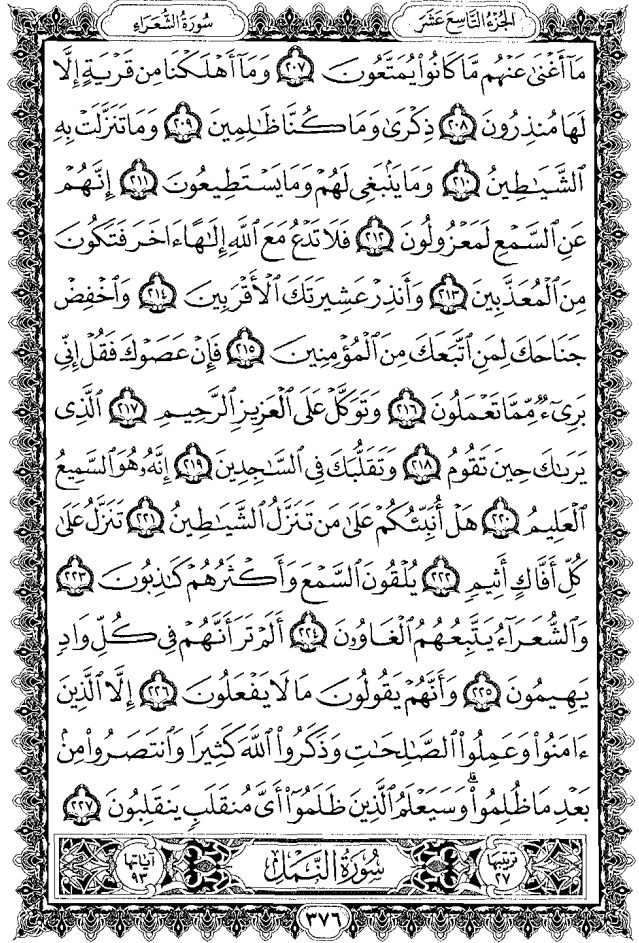 الجزء التاسع عشر
سورة الشعراء
مَآ أَغْنَىٰ عَنْهُم مَّا كَانُوا۟ يُمَتَّعُونَ ﴿٢٠٧﴾ وَمَآ أَهْلَكْنَا مِن قَرْيَةٍ إِلَّا
لَهَا مُنذِرُونَ ﴿٢٠٨﴾ ذِكْرَىٰ وَمَا كُنَّا ظَـٰلِمِينَ ﴿٢٠٩﴾ وَمَا تَنَزَّلَتْ بِهِ
ٱلشَّيَـٰطِينُ ﴿٢١٠﴾ وَمَا يَنۢبَغِى لَهُمْ وَمَا يَسْتَطِيعُونَ ﴿٢١١﴾ إِنَّهُمْ
عَنِ ٱلسَّمْعِ لَمَعْزُولُونَ ﴿٢١٢﴾ فَلَا تَدْعُ مَعَ ٱللَّهِ إِلَـٰهًا ءَاخَرَ فَتَكُونَ
مِنَ ٱلْمُعَذَّبِينَ ﴿٢١٣﴾ وَأَنذِرْ عَشِيرَتَكَ ٱلْأَقْرَبِينَ ﴿٢١٤﴾ وَٱخْفِضْ
جَنَاحَكَ لِمَنِ ٱتَّبَعَكَ مِنَ ٱلْمُؤْمِنِينَ ﴿٢١٥﴾ فَإِنْ عَصَوْكَ فَقُلْ إِنِّى
بَرِىٓءٌ مِّمَّا تَعْمَلُونَ ﴿٢١٦﴾ وَتَوَكَّلْ عَلَى ٱلْعَزِيزِ ٱلرَّحِيمِ ﴿٢١٧﴾ ٱلَّذِى
يَرَىٰكَ حِينَ تَقُومُ ﴿٢١٨﴾ وَتَقَلُّبَكَ فِى ٱلسَّـٰجِدِينَ ﴿٢١٩﴾ إِنَّهُۥ هُوَ ٱلسَّمِيعُ
ٱلْعَلِيمُ ﴿٢٢٠﴾ هَلْ أُنَبِّئُكُمْ عَلَىٰ مَن تَنَزَّلُ ٱلشَّيَـٰطِينُ ﴿٢٢١﴾ تَنَزَّلُ عَلَىٰ
كُلِّ أَفَّاكٍ أَثِيمٍ ﴿٢٢٢﴾ يُلْقُونَ ٱلسَّمْعَ وَأَكْثَرُهُمْ كَـٰذِبُونَ ﴿٢٢٣﴾
وَٱلشُّعَرَآءُ يَتَّبِعُهُمُ ٱلْغَاوُۥنَ ﴿٢٢٤﴾ أَلَمْ تَرَ أَنَّهُمْ فِى كُلِّ وَادٍ
يَهِيمُونَ ﴿٢٢٥﴾ وَأَنَّهُمْ يَقُولُونَ مَا لَا يَفْعَلُونَ ﴿٢٢٦﴾ إِلَّا ٱلَّذِينَ
ءَامَنُوا۟ وَعَمِلُوا۟ ٱلصَّـٰلِحَـٰتِ وَذَكَرُوا۟ ٱللَّهَ كَثِيرًا وَٱنتَصَرُوا۟ مِنۢ
بَعْدِ مَا ظُلِمُوا۟ ۗ وَسَيَعْلَمُ ٱلَّذِينَ ظَلَمُوٓا۟ أَىَّ مُنقَلَبٍ يَنقَلِبُونَ ﴿٢٢٧﴾
ترتيبها ٢٧ سورة النمل آياتها ٩٣
٣٧٦